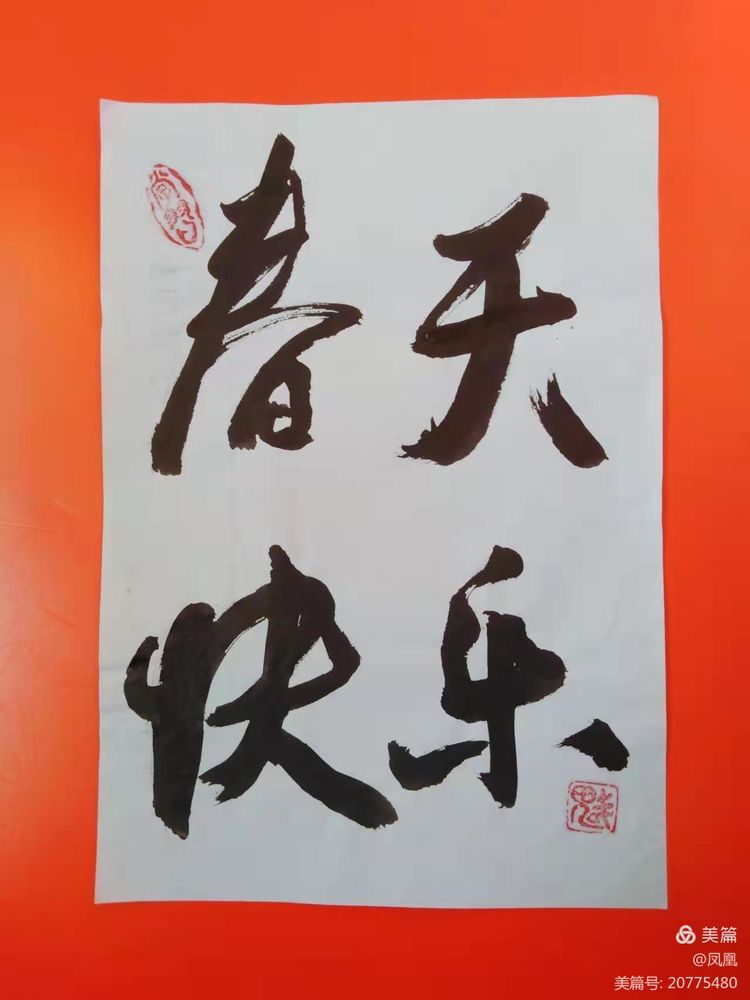 春天
快乐
美篇
@凤凰
美篇号: 20775480